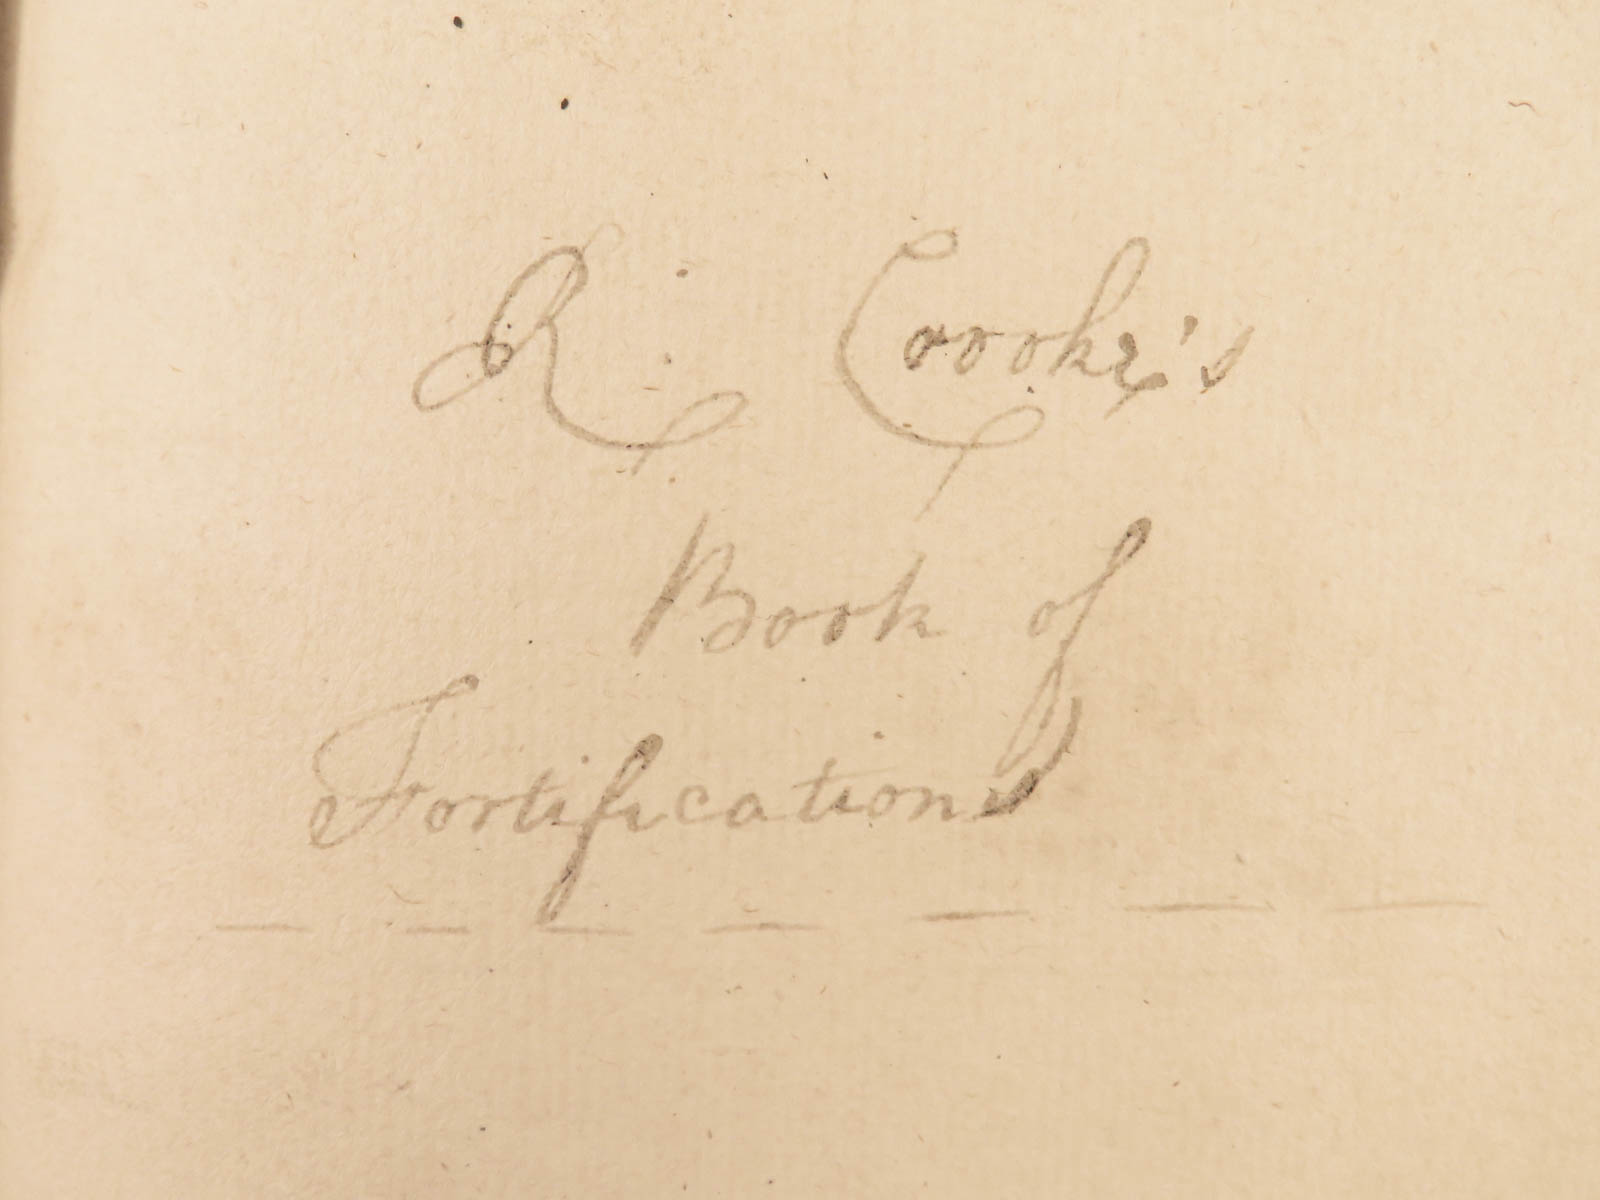 R: Crooke's
Book of
Fortifications